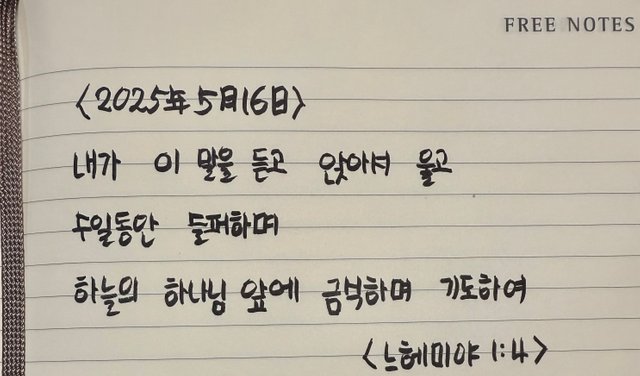 FREE NOTES
<2025年 5月16日>
내가 이 말을 듣고 앉아서 울고
수일동안 슬퍼하며
하늘의 하나님 앞에 금식하며 기도하여
<느헤미야 1:4>